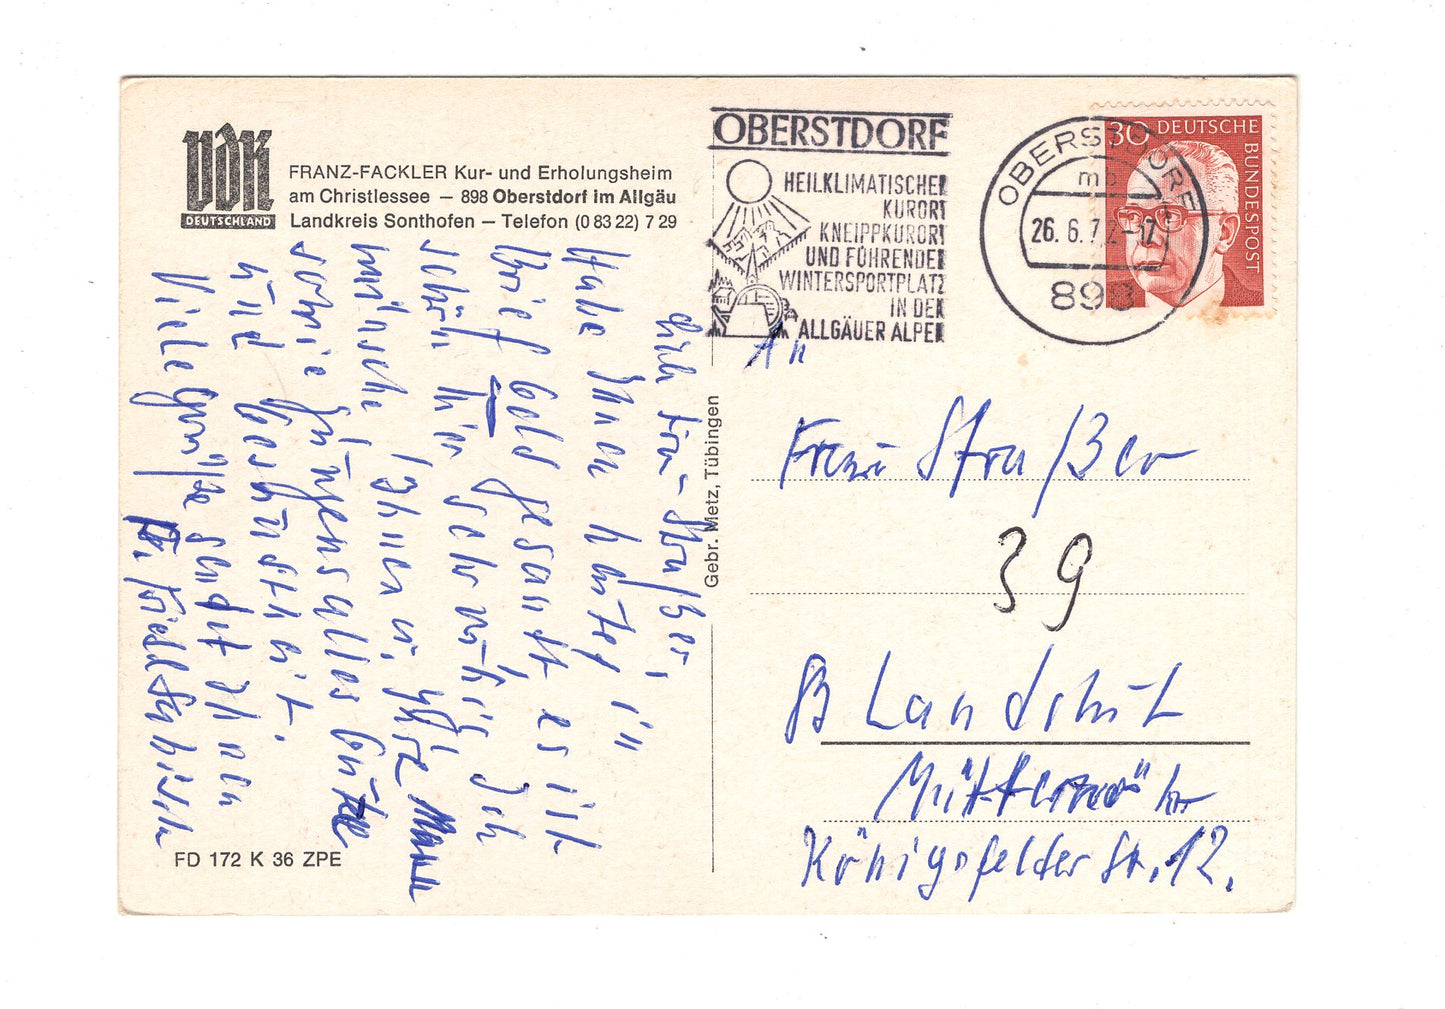 VdK
DEUTSCHLAND
FRANZ-FACKLER Kur- und Erholungsheim
am Christlessee – 898 Oberstdorf im Allgäu
Landkreis Sonthofen – Telefon (0 83 22) 7 29
Frau Straßer,
Habe Ihnen heute, in
Brief Geld gesandt, es ist
schön hier, sehr ruhig. Ich
wünsche Ihnen u.
sowie Jürgen alles Gute
und Gesundheit.
Viele Grüße sendet Ihnen
FD 172 K 36 ZPE
Gebr. Metz, Tübingen
OBERSTDORF
HEILKLIMATISCHER
KURORT
KNEIPPKURORT
UND FÜHRENDER
WINTERSPORTPLATZ
IN DEN
ALLGÄUER ALPEN
OBERSTDORF
mb
26.6.72-17
898
30 DEUTSCHE
BUNDESPOST
An
Frau Straßer
39
83 Landshut
Königsfelder Str. 12.